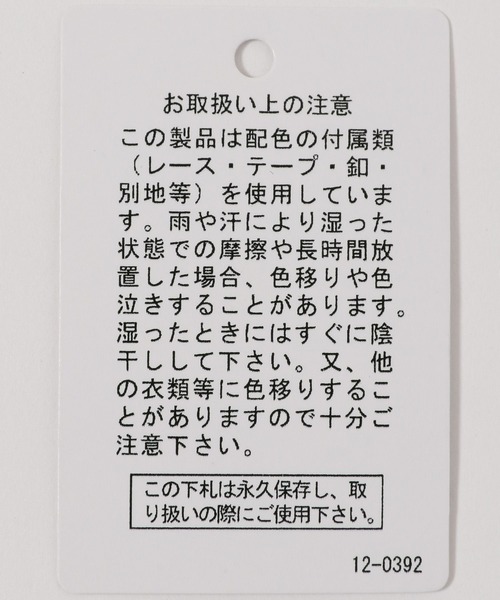 お取扱い上の注意
この製品は配色の付属類
（レース・テープ・釦・
別地等）を使用していま
す。雨や汗により湿った
状態での摩擦や長時間放
置した場合、色移りや色
泣きすることがあります。
湿ったときにはすぐに陰
干しして下さい。又、他
の衣類等に色移りするこ
とがありますので十分ご
注意下さい。
この下札は永久保存し、取
り扱いの際にご使用下さい。
12-0392